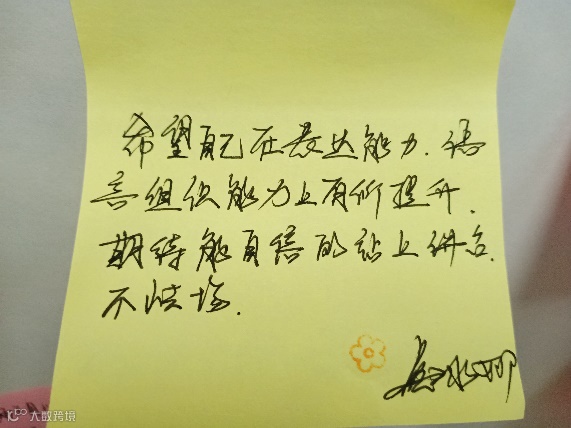 希望自己在表达能力、语
言组织能力上有所提升.
期待能自信的站上讲台.
不怯场.
大数跨境